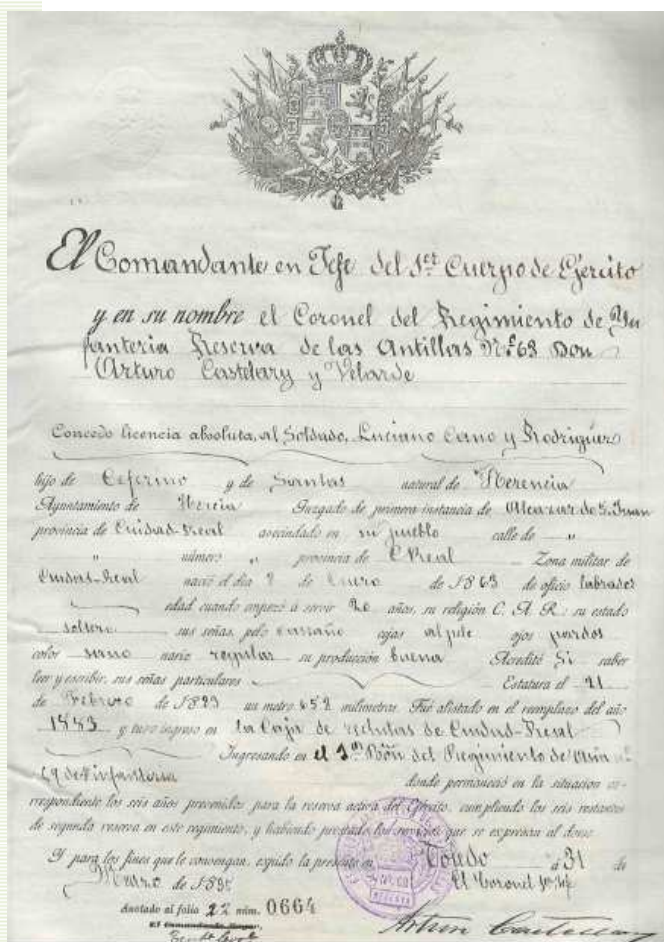 El Comandante en Jefe del 1er Cuerpo de Ejército
y en su nombre el Coronel del Regimiento de Yn
fanteria Reserva de las Antillas Nº 68 Don
Arturo Castelary y Velarde
Concedo licencia absoluta, al Soldado, Luciano Cano y Rodriguez
hijo de Ceferino y de Santas natural de Herencia
Ayuntamiento de Juzgado de primera instancia de Alcazar de S. Juan
provincia de Ciudad-Real avecindado en su pueblo calle de "
" número " provincia de CReal Zona militar de
Ciudad-Real nació el dia de Enero de 1863 de oficio labrador
edad cuando empezó á servir 20 años, su religión C. A. R.: su estado
soltero sus señas, pelo castaño cejas al pelo ojos pardos
color sano nariz regular su producción buena Acreditó Si saber
leer y escribir, sus señas particulares Estatura el 21
de Febrero de un metro 652 milimetros. Fué alistado en el reemplazo del año
1883 y tuvo ingreso en la Caja de reclutas de Ciudad-Real
Ingresando en el Bón del Regimiento de Asia nº
de infanteria donde permaneció en la situacion co-
rrespondiente los seis años prevenidos para la reserva activa del Ejército, cumpliendo los seis restantes
de segunda reserva en este regimiento, y habiendo prestado los servicios que se expresan al dorso.
Y para los fines que le convengan, expido la presente en Toledo á 31 de
Marzo de El Coronel
Anotado al folio 22 núm. 0664
El Comandante Mayor,
Arturo Castellary